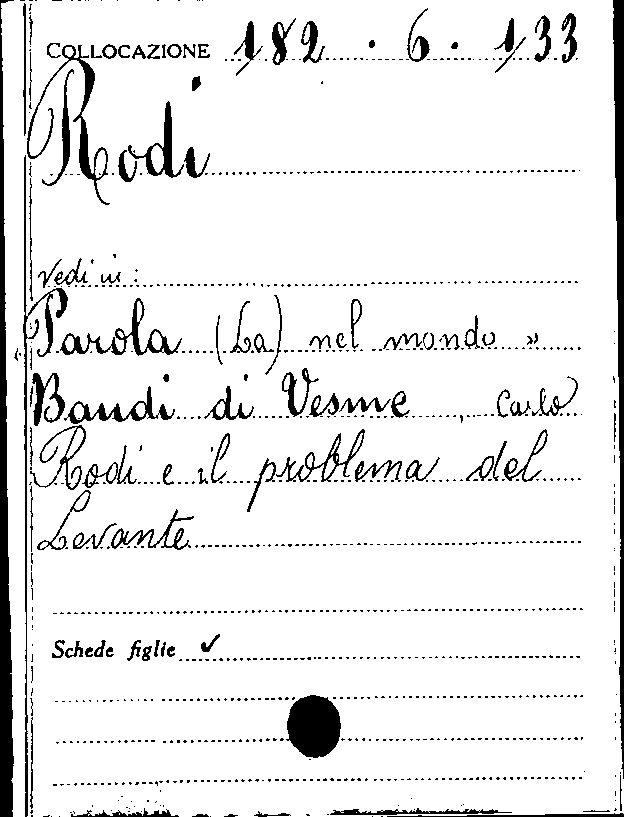 COLLOCAZIONE 182 . 6 . 133
Rodi
Vedi in :
« Parola (La) nel mondo »
Baudi di Vesme , Carlo
Rodi e il problema del
Levante
Schede figlie ✓